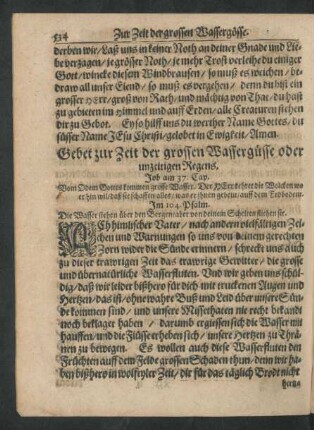 534 Zur Zeit der grossen Wassergösse.
derben wir/ Laß uns in keiner Noth an deiner Gnade und Lie-
be verzagen/ je grösser Noth/ je mehr Trost verleihe du einiger
Gott/ wincke diesem Windbrausen/ so muß es weichen/ be-
draw all unser Elend/ so muß es vergehen/ denn du bist ein
grosser HErr/ groß von Rath/ und mächtig von That/ du hast
zu gebieten im Himmel und auff Erden/ alle Creaturen stehen
dir zu Gebot. Ey so hilff uns du werther Name Gottes/ du
süsser Name JEsu Christi/ gelobet in Ewigkeit/ Amen.
Gebet zur Zeit der grossen Wassergüsse oder
unzeitigen Regens.
Job am 37. Cap.
Vom Odem Gottes kommen grosse Wasser. Der HErr kehret die Wolcken wo
er hin wil/ daß sie schaffen alles/ was er ihnen gebeut/ auff dem Erdbodem.
Im 104. Psalm.
Die Wasser stehen über den Bergen/ aber von deinem Schelten fliehen sie.
ACh himlischer Vater/ nach andern vielfältigen Zei-
chen und Warnungen so uns von deinem gerechten
Zorn wider die Sünde erinnern/ schreckt uns auch
zu dieser trawrigen Zeit das trawrige Gewitter/ die grosse
und übernatürliche Wasserfluten. Und wir geben uns schül-
dig/ daß wir leider bißhero für dich mit truckenen Augen und
Hertzen/ das ist/ ohne wahre Buß und Leid über unsere Sün-
de kommen sind/ und unsere Missethaten nie recht bekandt
noch beklaget haben/ darumb ergiessen sich die Wasser mit
hauffen/ und die Flüsse erheben sich/ unsere Hertzen zu Thrä-
nen zu bewegen. Es wollen auch diese Wasserfluten den
Früchten auff dem Felde grossen Schaden thun/ denn wir ha-
ben bißhero in wolfeyler Zeit/ dir für das täglich Brodt nicht
hertz-